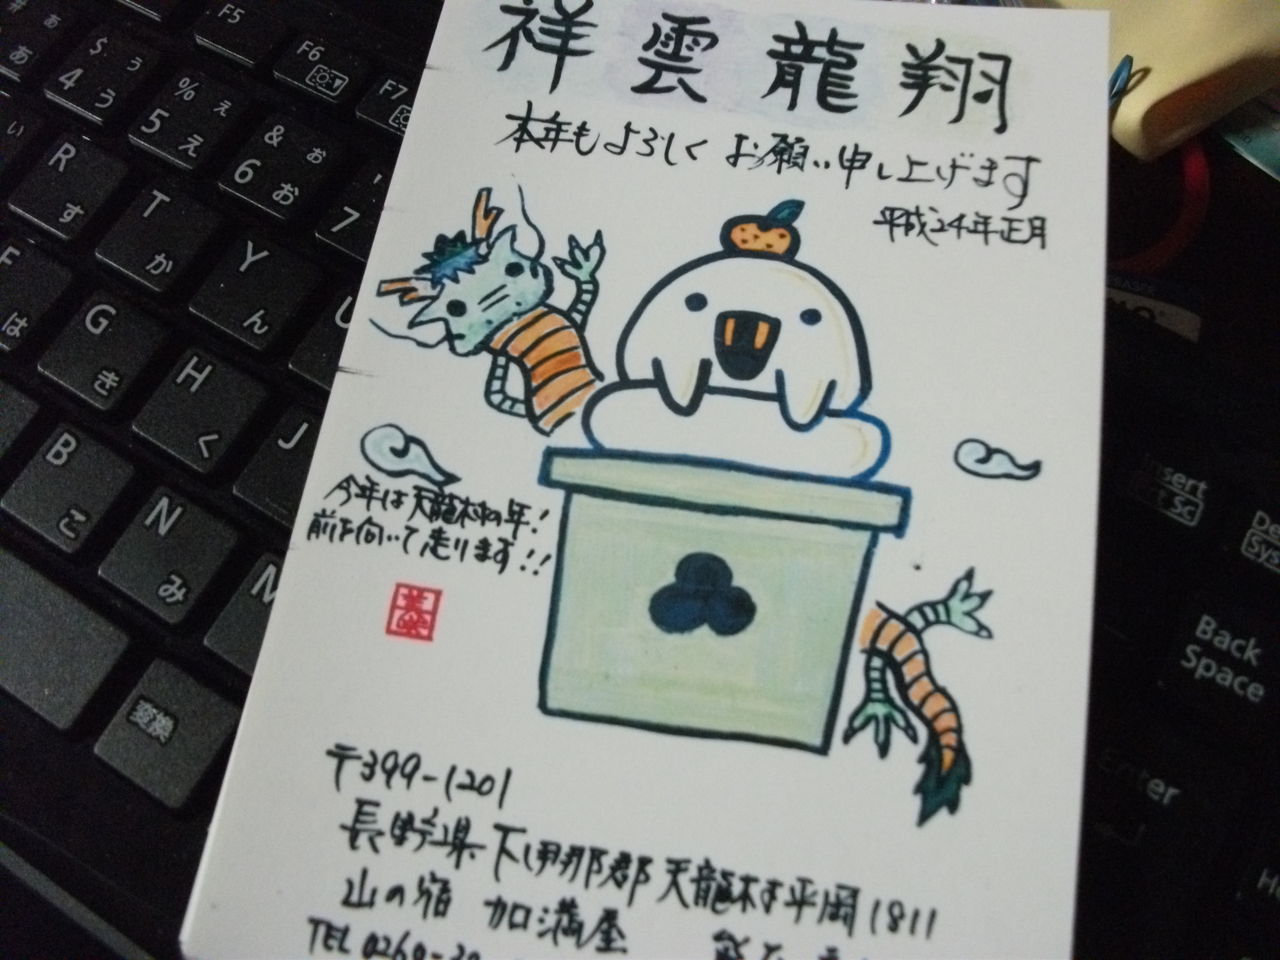 祥雲龍翔
本年もよろしくお願い申し上げます
平成24年正月
今年は天龍村の年!
前を向いて走ります!!
〒399-1201
長野県下伊那郡天龍村平岡1811
山の宿 加満屋
TEL 0260-32
F5
F6
F7
$ う
4 ぅ
% ぇ
5 え
& ぉ
6 お
7
R
す
T
か
Y
ん
F
は
G
き
H
く
J
B
こ
N
み
M
変換
Insert
Back
Space
Enter